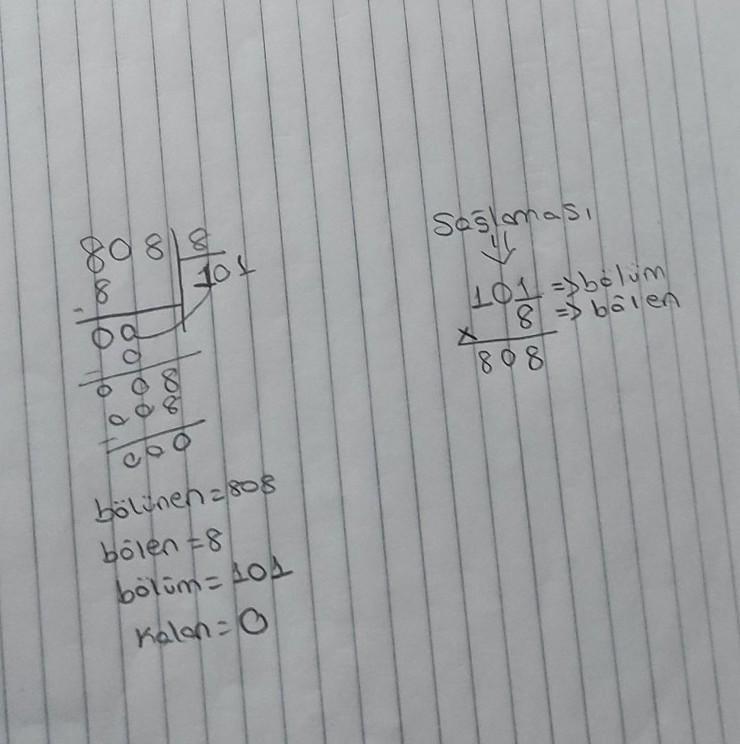 808 8
- 8 101
00
- 0
008
- 008
000
bölünen = 808
bölen = 8
bölüm = 101
Kalan = 0
Sağlaması
101 => bölüm
x 8 => bölen
808